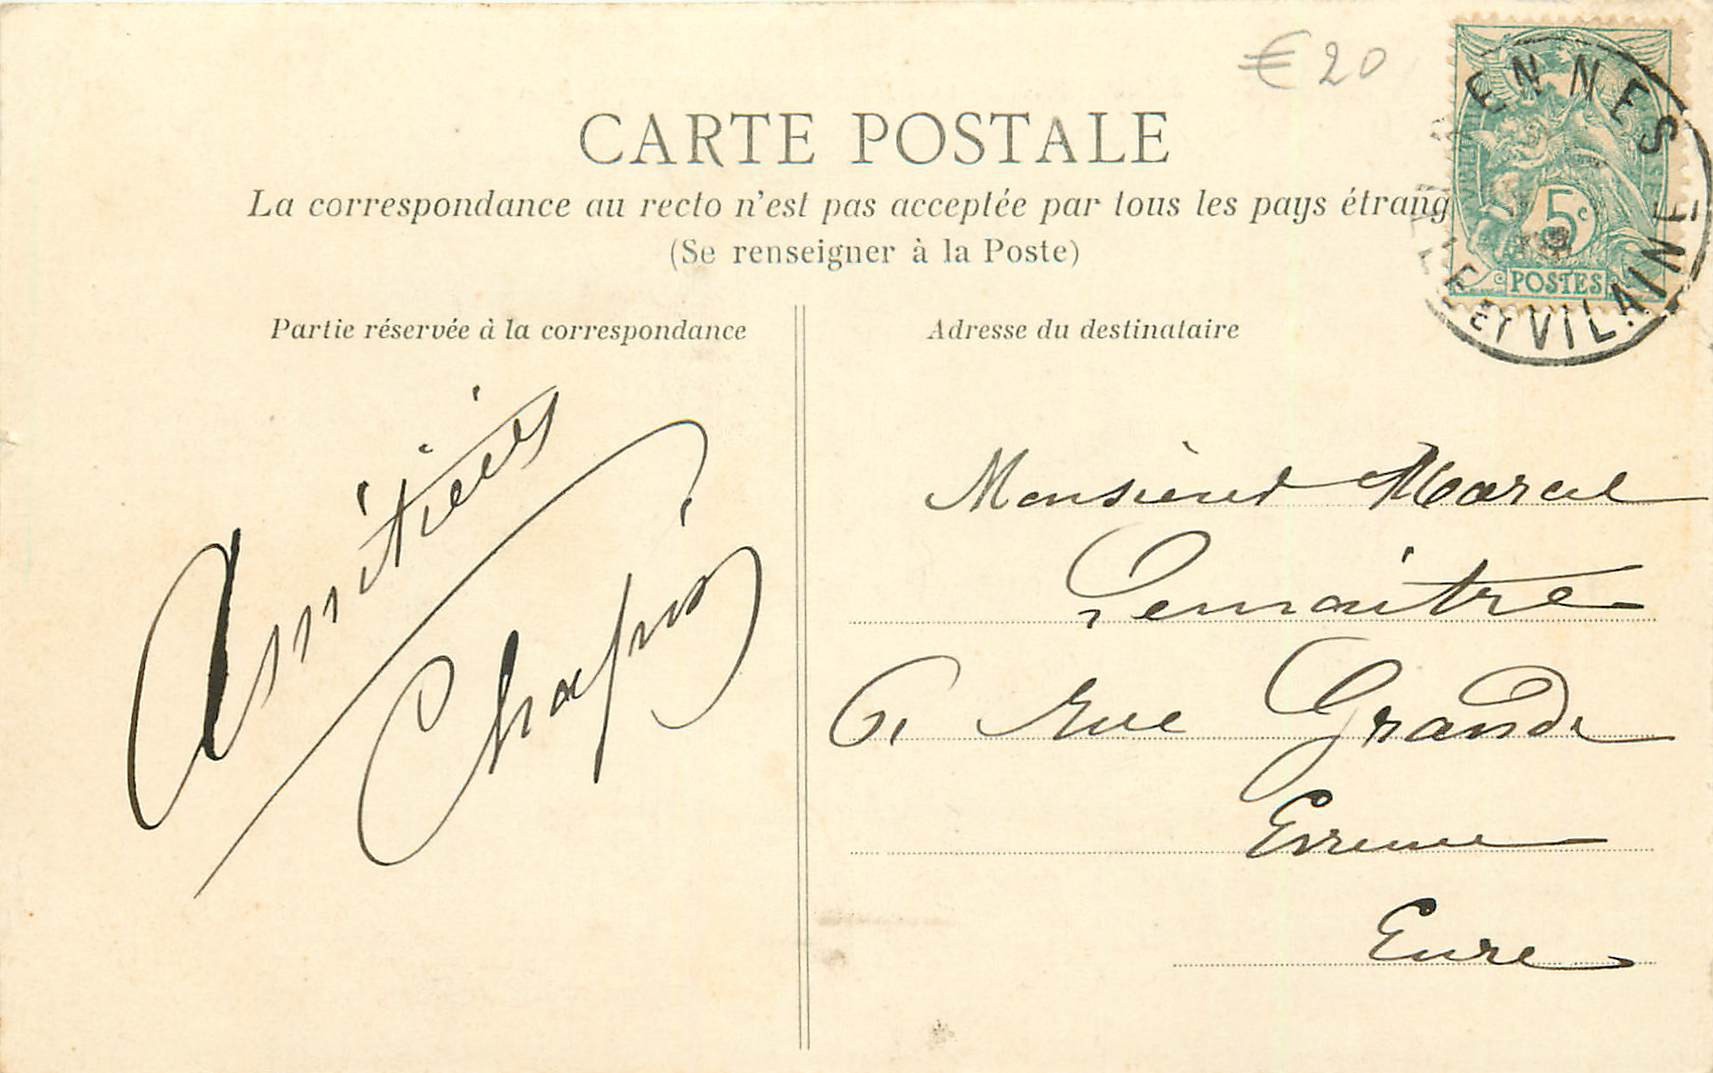 € 20
CARTE POSTALE
La correspondance au recto n'est pas acceptée par tous les pays étrang
(Se renseigner à la Poste)
Partie réservée à la correspondance
Adresse du destinataire
5c
POSTES
RENNES
ILLE ET VILAINE
Amitiés
Monsieur Marcel
Lemaitre
6, Rue Grande
Evreux
Eure